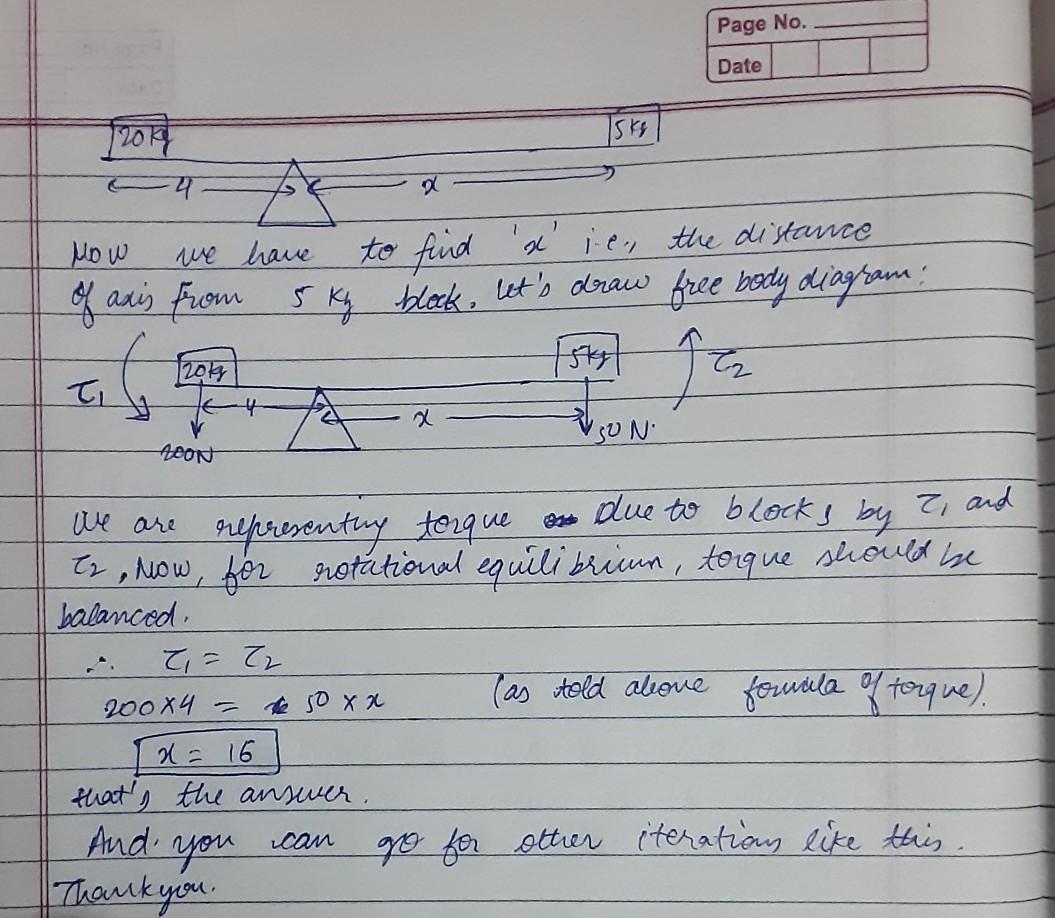 Page No.
Date
20 Kg
5 Kg
4
x
Now we have to find 'x' i.e., the distance
of axis from 5 Kg block. Let's draw free body diagram:
τ₁
20 kg
5 kg
τ₂
4
x
200N
50 N.
We are representing torque due to blocks by τ₁ and
τ₂, Now, for rotational equilibrium, torque should be
balanced.
∴ τ₁ = τ₂
200×4 = 50 × x (as told above formula of torque).
x = 16
that's the answer.
And. you can go for other iterations like this.
Thankyou.